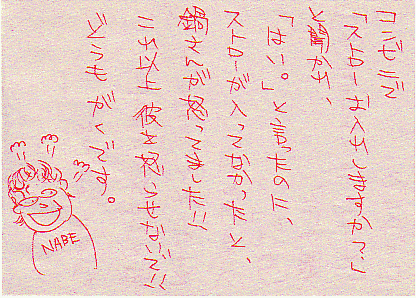 コンビニで
「ストローは入れしますか?」
と聞かれ、
「はい。」と言ったのに、
ストローが入ってなかったと、
鍋さんが怒ってました!!
これ以上彼を怒らせないで!!
どうもがくです。
NABE